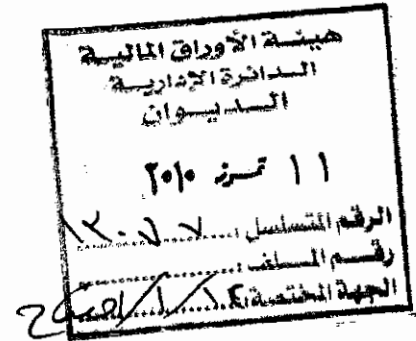 هيئة الأوراق المالية
الدائرة الإدارية
الديوان
١١ تمـوز ٢٠١٠
الرقم المتسلسل:
رقم الملف:
الجهة المختصة: